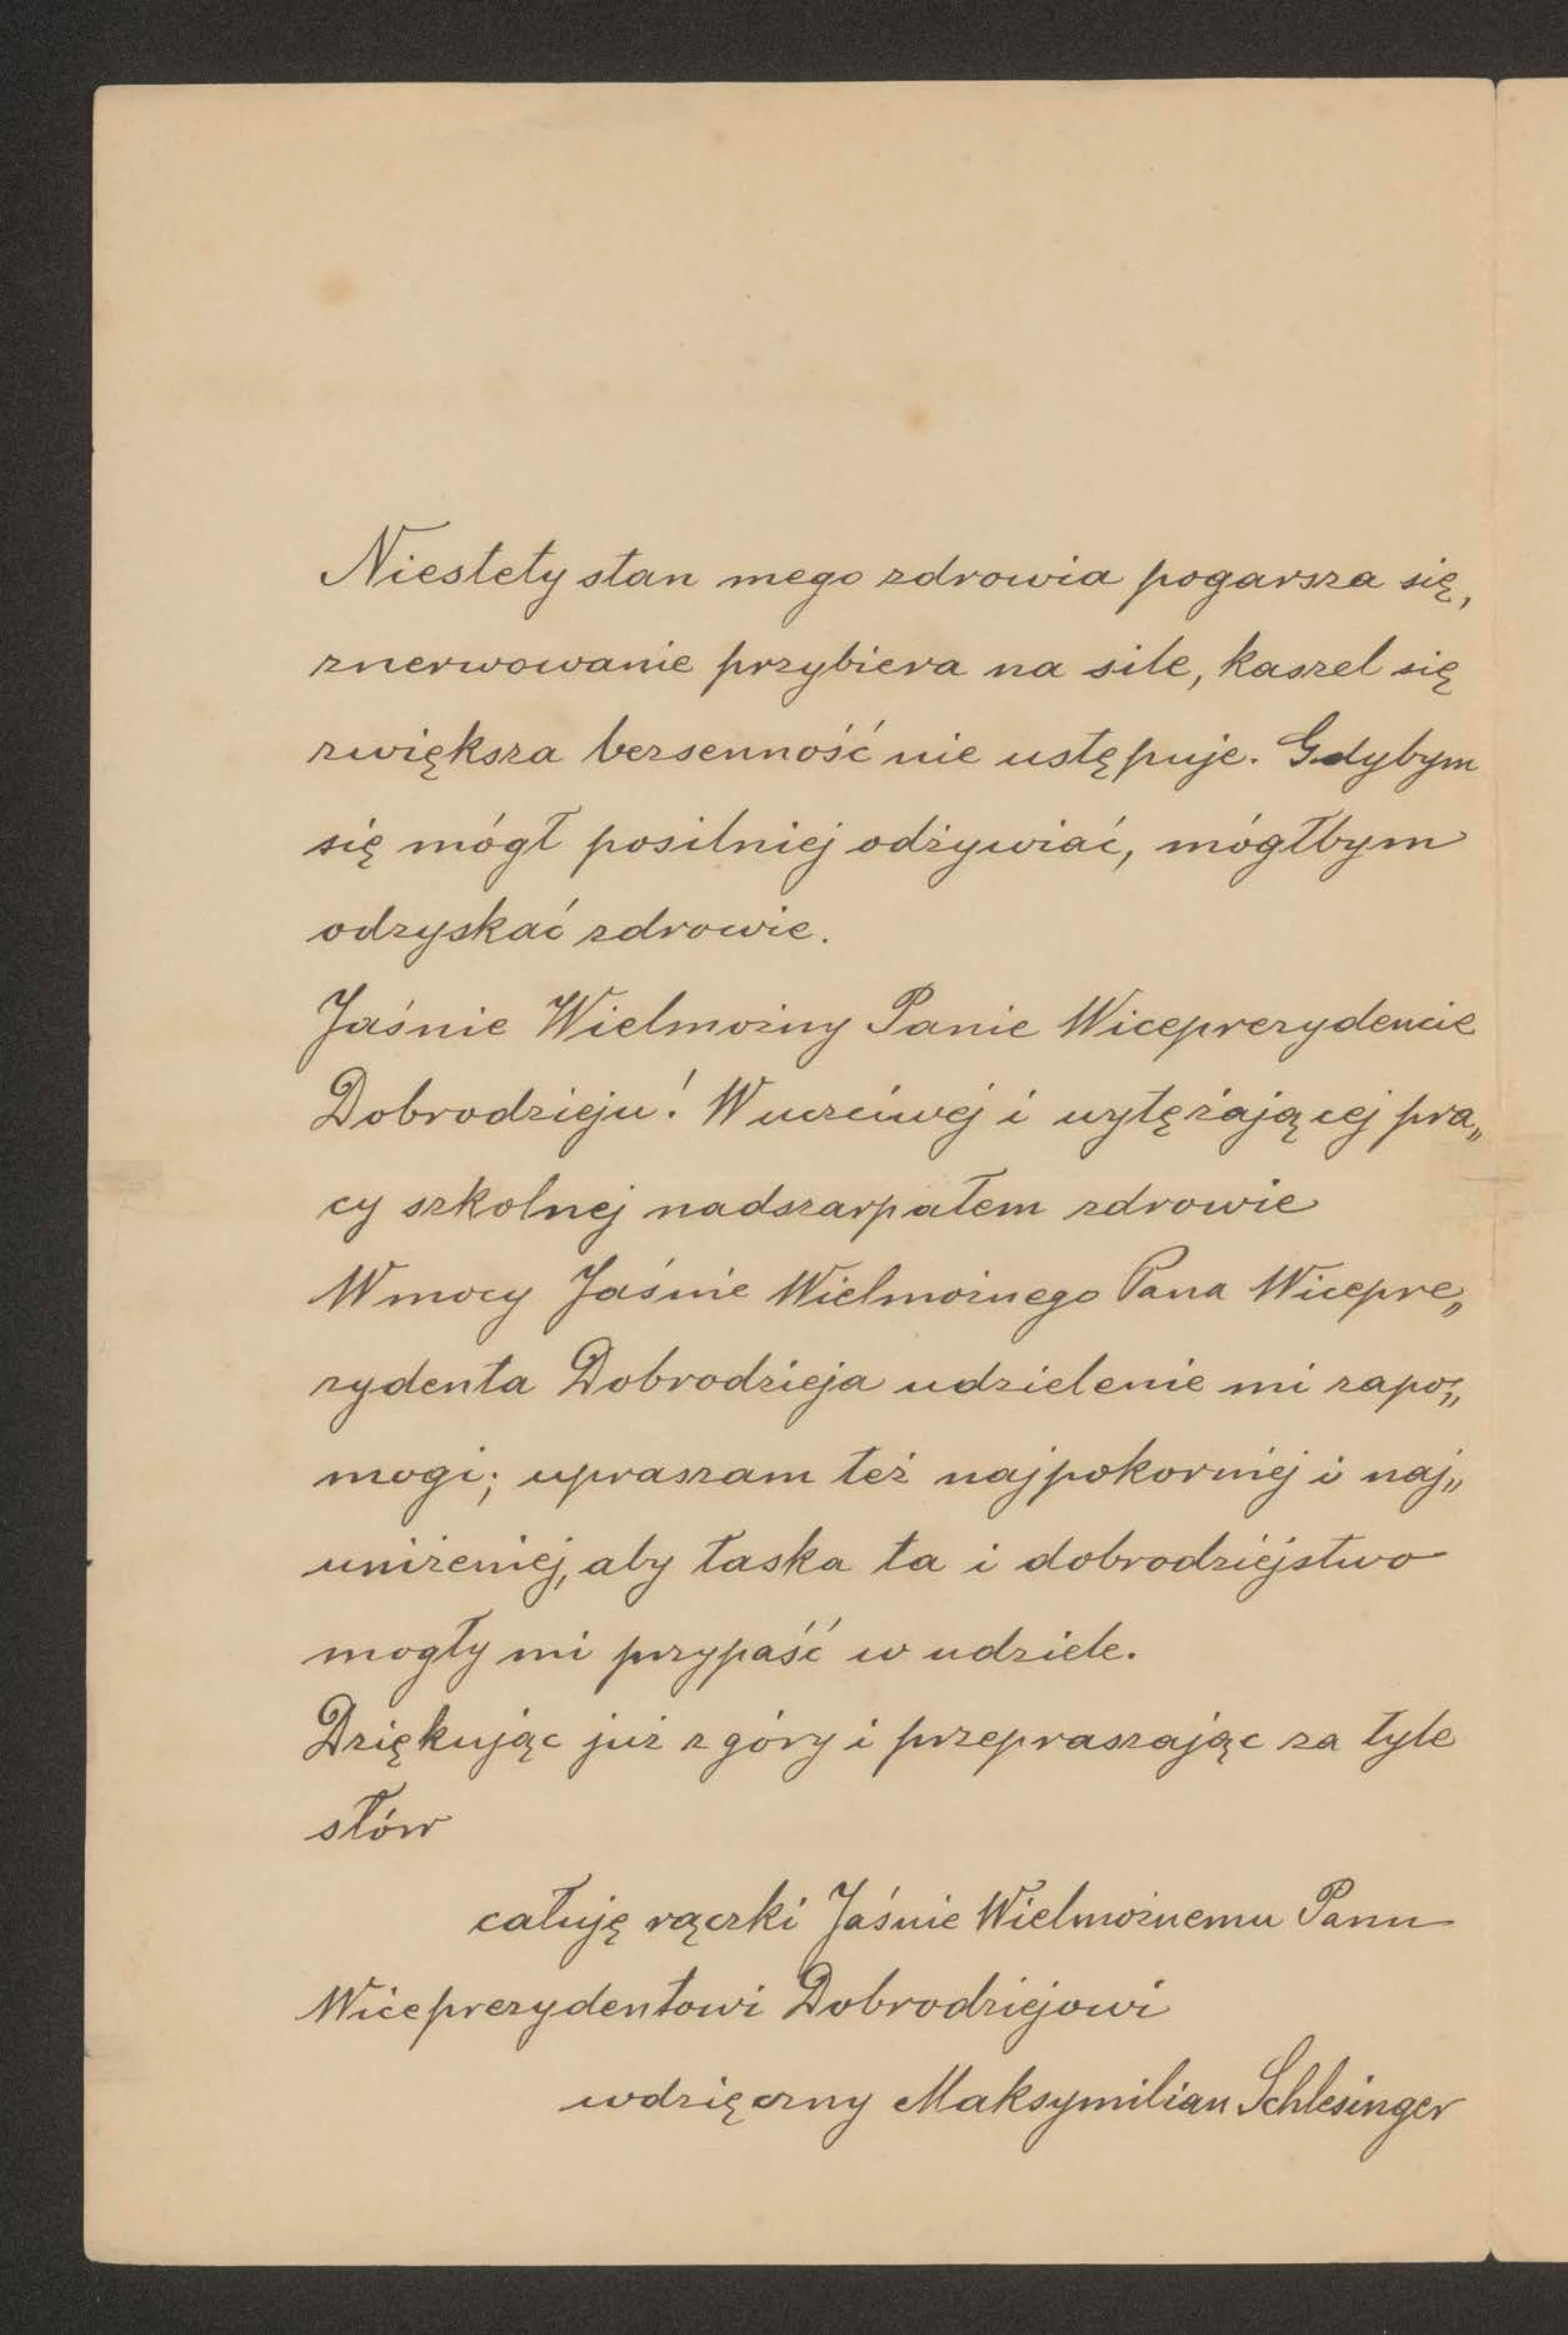 Niestety stan mego zdrowia pogarsza się,
znerwowanie przybiera na sile, kaszel się
zwiększa bezsenność nie ustępuje. Gdybym
się mógł posilniej odżywiać, mógłbym
odzyskać zdrowie.
Jaśnie Wielmożny Panie Wiceprezydencie
Dobrodzieju! W uczciwej i wytężającej pra„
cy szkolnej nadszarpałem zdrowie
W mocy Jaśnie Wielmożnego Pana Wicepre„
zydenta Dobrodzieja udzielenie mi zapo„
mogi; upraszam też najpokorniej i naj„
uniżeniej, aby łaska ta i dobrodziejstwo
mogły mi przypaść w udziele.
Dziękując już z góry i przepraszając za tyle
słów
całuję rączki Jaśnie Wielmożnemu Panu
Wiceprezydentowi Dobrodziejowi
wdzięczny Maksymilian Schlesinger